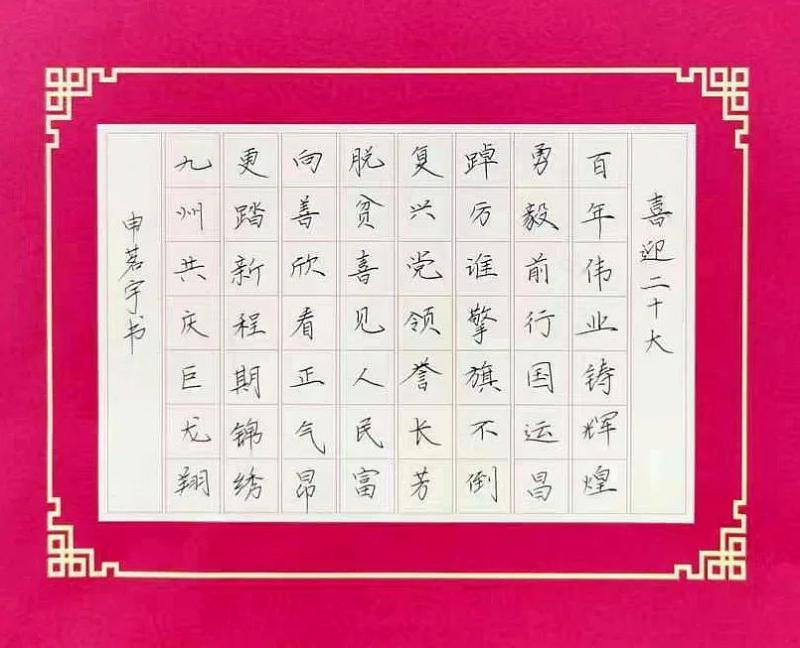 喜迎二十大
百年伟业铸辉煌
勇毅前行国运昌
踔厉谁擎旗不倒
复兴党领誉长芳
脱贫喜见人民富
向善欣看正气昂
更踏新程期锦绣
九州共庆巨龙翔
申茗宇书